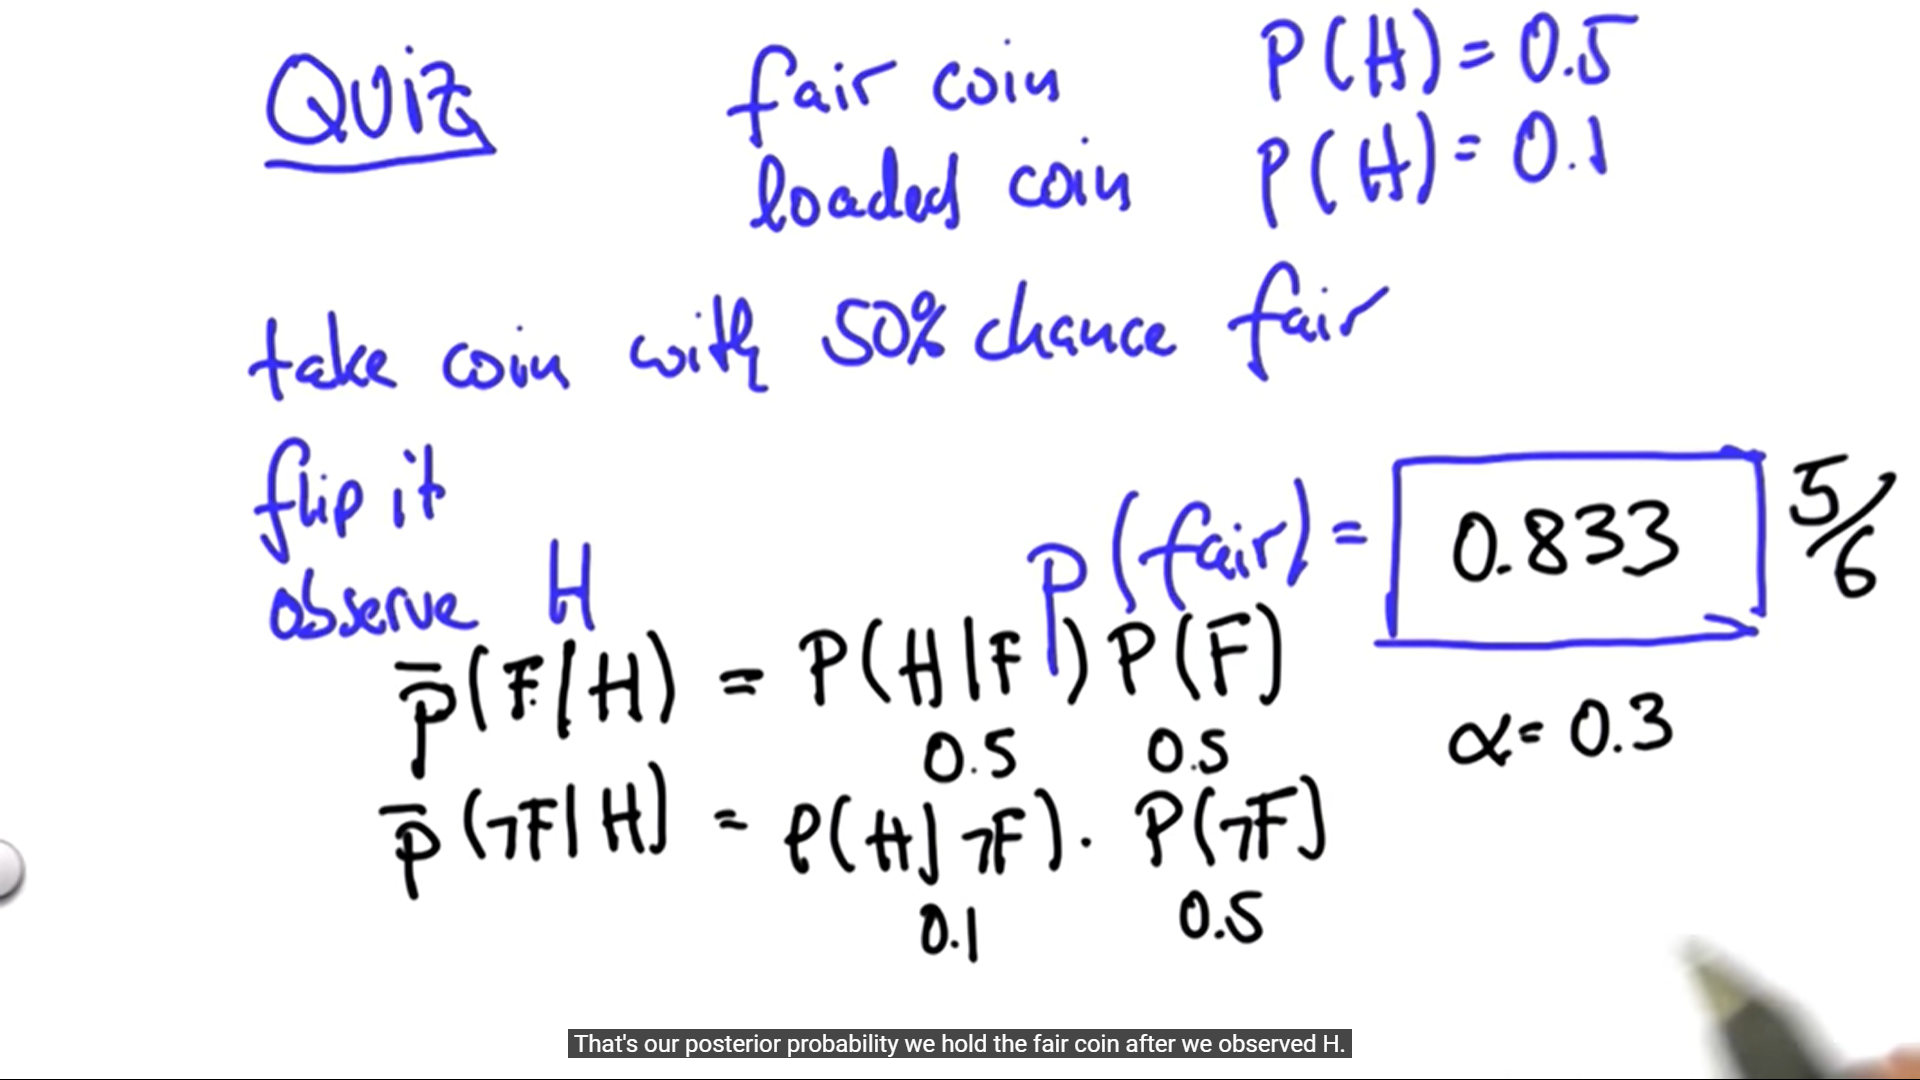 Quiz
fair coin P(H) = 0.5
loaded coin P(H) = 0.1
take coin with 50% chance fair
flip it
observe H
P(fair) = 0.833 5/6
p̄(F|H) = P(H|F) P(F)
0.5 0.5
α = 0.3
p̄(¬F|H) = P(H|¬F) · P(¬F)
0.1 0.5
That's our posterior probability we hold the fair coin after we observed H.